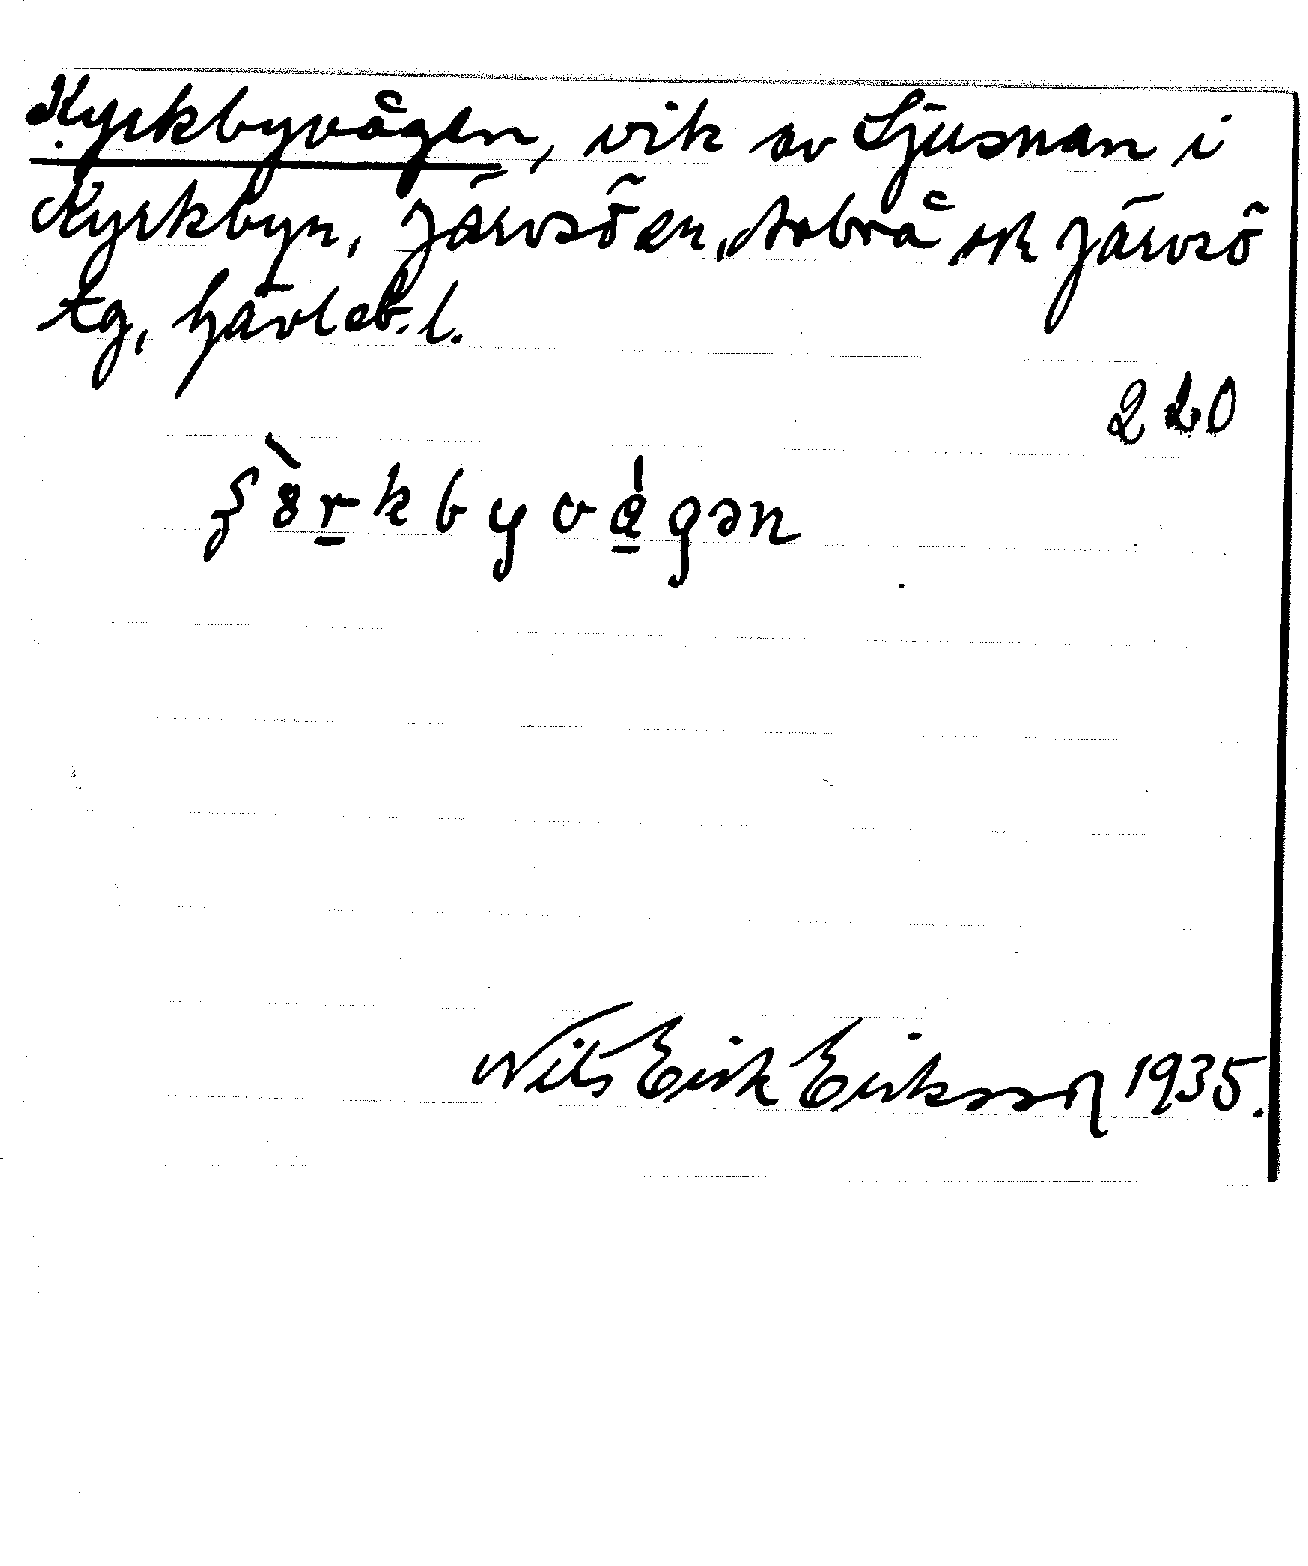 Kyrkbyvågen, vik av Ljusnan i
Kyrkbyn, Järvsö sn, Arbrå ok Järvsö
tg, Gävleb. l.
220
Nils Erik Eriksson 1935.